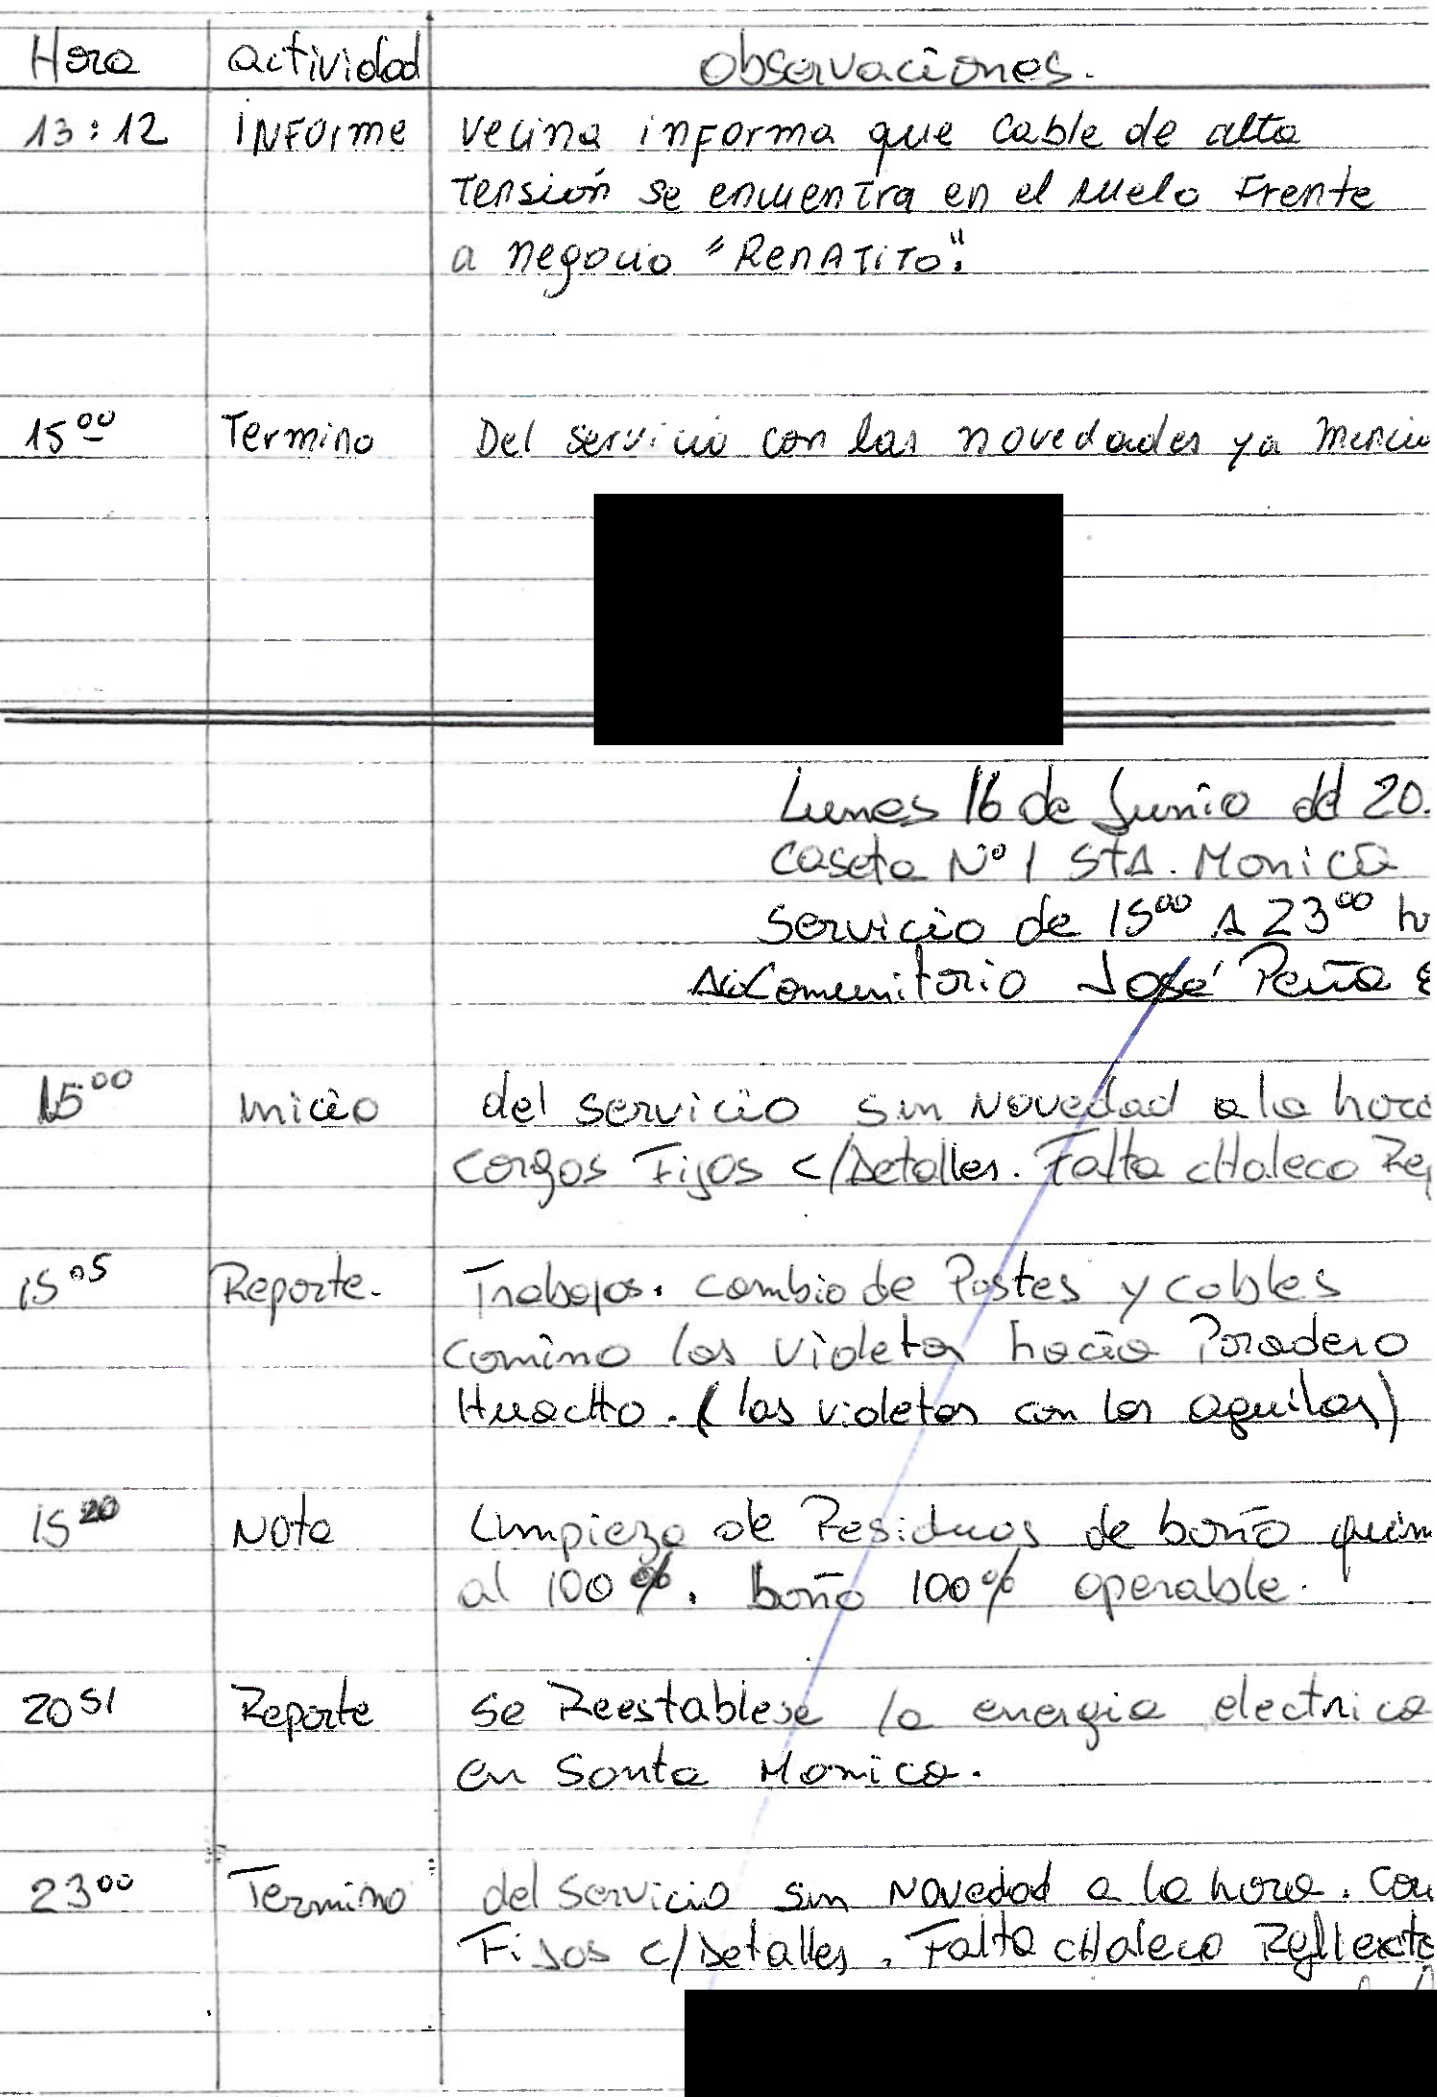 Hora actividad observaciones.
13:12 informe vecina informa que cable de alta
tensión se encuentra en el suelo frente
a negocio "Renatito".
15⁰⁰ Termino Del servicio con las novedades ya
Lunes 16 de Junio del 20.
Caseta N° 1 Sta. Monica
Servicio de 15⁰⁰ A 23⁰⁰
José Peña
15⁰⁰ inicio del servicio sin Novedad a la hora
Cargos Fijos c/Detalles. Falta cHaleco
15⁰⁵ Reporte. Trabajos. cambio de Postes y cables
camino las violetas hacia Paradero
Huacho. (las violetas con las aguilas)
15²⁰ Nota Limpieza de Residuos de baño
al 100%. baño 100% operable.
20⁵¹ Reporte se Reestablese la energia electrica
en Santa Monica.
23⁰⁰ Termino del servicio sin Novedad a la hora.
Fijos c/Detalles. Falta cHaleco